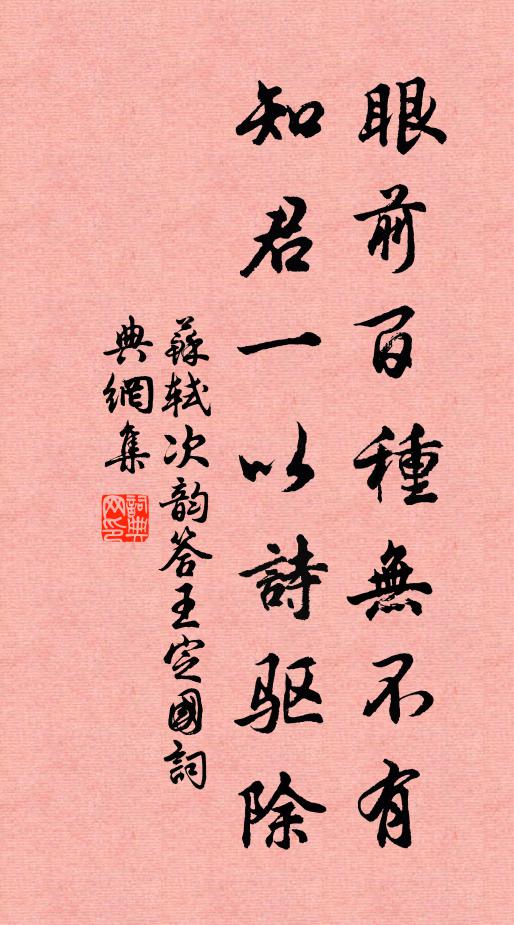 眼前百種無不有
知君一以詩驱除
蘇軾次韵答王定國詞
典網集
詞典网印